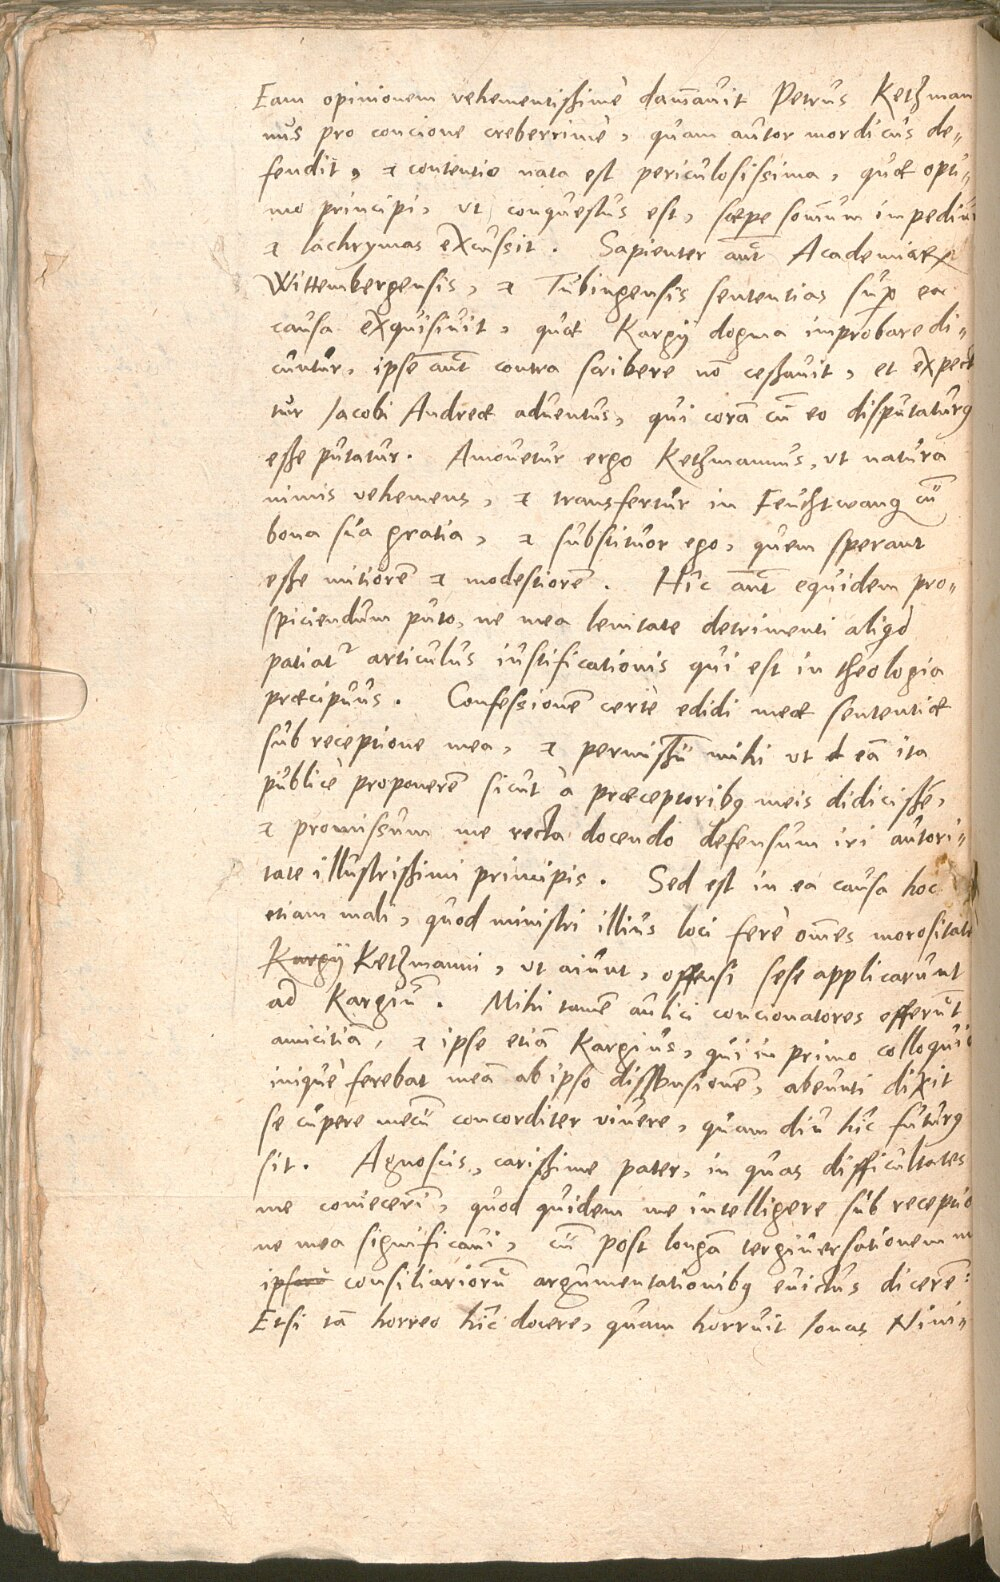 Eam opinionem vehementißime dam̄auit Petrus Ketzman
nus pro concione creberrimè, quam autor mordicus de„
fendit, & contentio nata est periculosissima, quæ opti„
mo principi, ut conquestus est, sæpe som̄um impediuit
& lachrymas excussit. Sapienter aut̄ Academiæ
Wittembergensis, & Tubingensis sententias sup ea
causa exquisiuit, quæ Kargij dogma improbare di„
cuntur, ipse aut̄ contra scribere nō ceßauit, et expecta
tur Iacobi Andreæ aduentus, qui corā cū eo disputaturꝰ
eße putatur. Amouetur ergo Ketzmannus, ut natura
nimis vehemens, & transfertur in Feuchtwang cū
bona sua gratia, & substituor ego, quem sperant
eße mitiorē & modestiorē. Hîc aut̄ equidem pro„
spiciendum puto, ne mea lenitate detrimenti aliqd
patiat᷑ articulus iustificationis qui est in theologia
præcipuus. Confessionē certè edidi meæ sententiæ
sub receptione mea, & permißū mihi ut eā ita
publicè proponerē sicut à præceptoribꝰ meis didicißē,
& promissum me recta docendo defensum iri autori„
tate illustrißimi principis. Sed est in ea causa hoc
etiam mali, quod ministri illius loci ferè om̄es morositate
Kargij Ketzmanni, ut aiunt, offensi sese applicarunt
ad Kargiū. Mihi tamē aulici concionatores efferūt
amicitiā, & ipse etiā Kargius, qui in primo colloquio
iniquè ferebat meā ab ipso dissensionē, abeunti dixit
se cupere mecū concorditer viuere, quam diu hîc futurꝰ
sit. Agnoscis, carißime pater, in quas difficultates
me coniecerī, quod quidem me intelligere sub receptio
ne mea significaui, cū post longā tergiuersationem
ipsorū consiliariorū argumentationibꝰ euictus dicerē:
Etsi tā horreo hîc docere, quam horruit Ionas Nini„